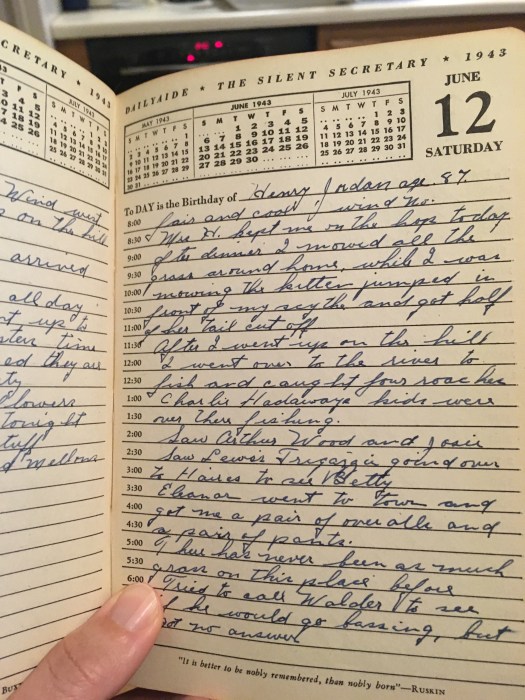 CRETARY ★ 1943
JULY 1943
S M T W T F S
Wind went
on the hill
arrived
all day
up to
time
ed they are
ty
flowers
tonight
tuff
d mellons
DAILYAIDE ★ THE SILENT SECRETARY ★ 1943
JUNE
12
SATURDAY
MAY 1943
S M T W T F S
1
2 3 4 5 6 7 8
9 10 11 12 13 14 15
16 17 18 19 20 21 22
23 24 25 26 27 28 29
30 31
JUNE 1943
S M T W T F S
1 2 3 4 5
6 7 8 9 10 11 12
13 14 15 16 17 18 19
20 21 22 23 24 25 26
27 28 29 30
JULY 1943
S M T W T F S
1 2 3
4 5 6 7 8 9 10
11 12 13 14 15 16 17
18 19 20 21 22 23 24
25 26 27 28 29 30 31
To DAY is the Birthday of Henry Jordan age 87
8:00 fair and cool, wind No.
8:30 Mrs H. kept me on the hop today
9:00 after dinner I mowed all the
9:30 grass around home, while I was
10:00 mowing the kitten jumped in
10:30 front of my scythe and got half
11:00 of her tail cut off
11:30 After I went up on the hill
12:00 I went over to the river to
12:30 fish and caught four roaches
1:00 Charlie Hadaways kids were
1:30 over there fishing.
2:00 Saw Arthur Wood and Josie
2:30 Saw Lewis going over
3:00 to Haires to see Betty
3:30 Eleanor went to town and
4:00 got me a pair of overalls and
4:30 a pair of pants.
5:00 There has never been as much
5:30 grass on this place before
6:00 Tried to call Walder to see
if he would go bassing, but
got no answer
"It is better to be nobly remembered, than nobly born"—RUSKIN